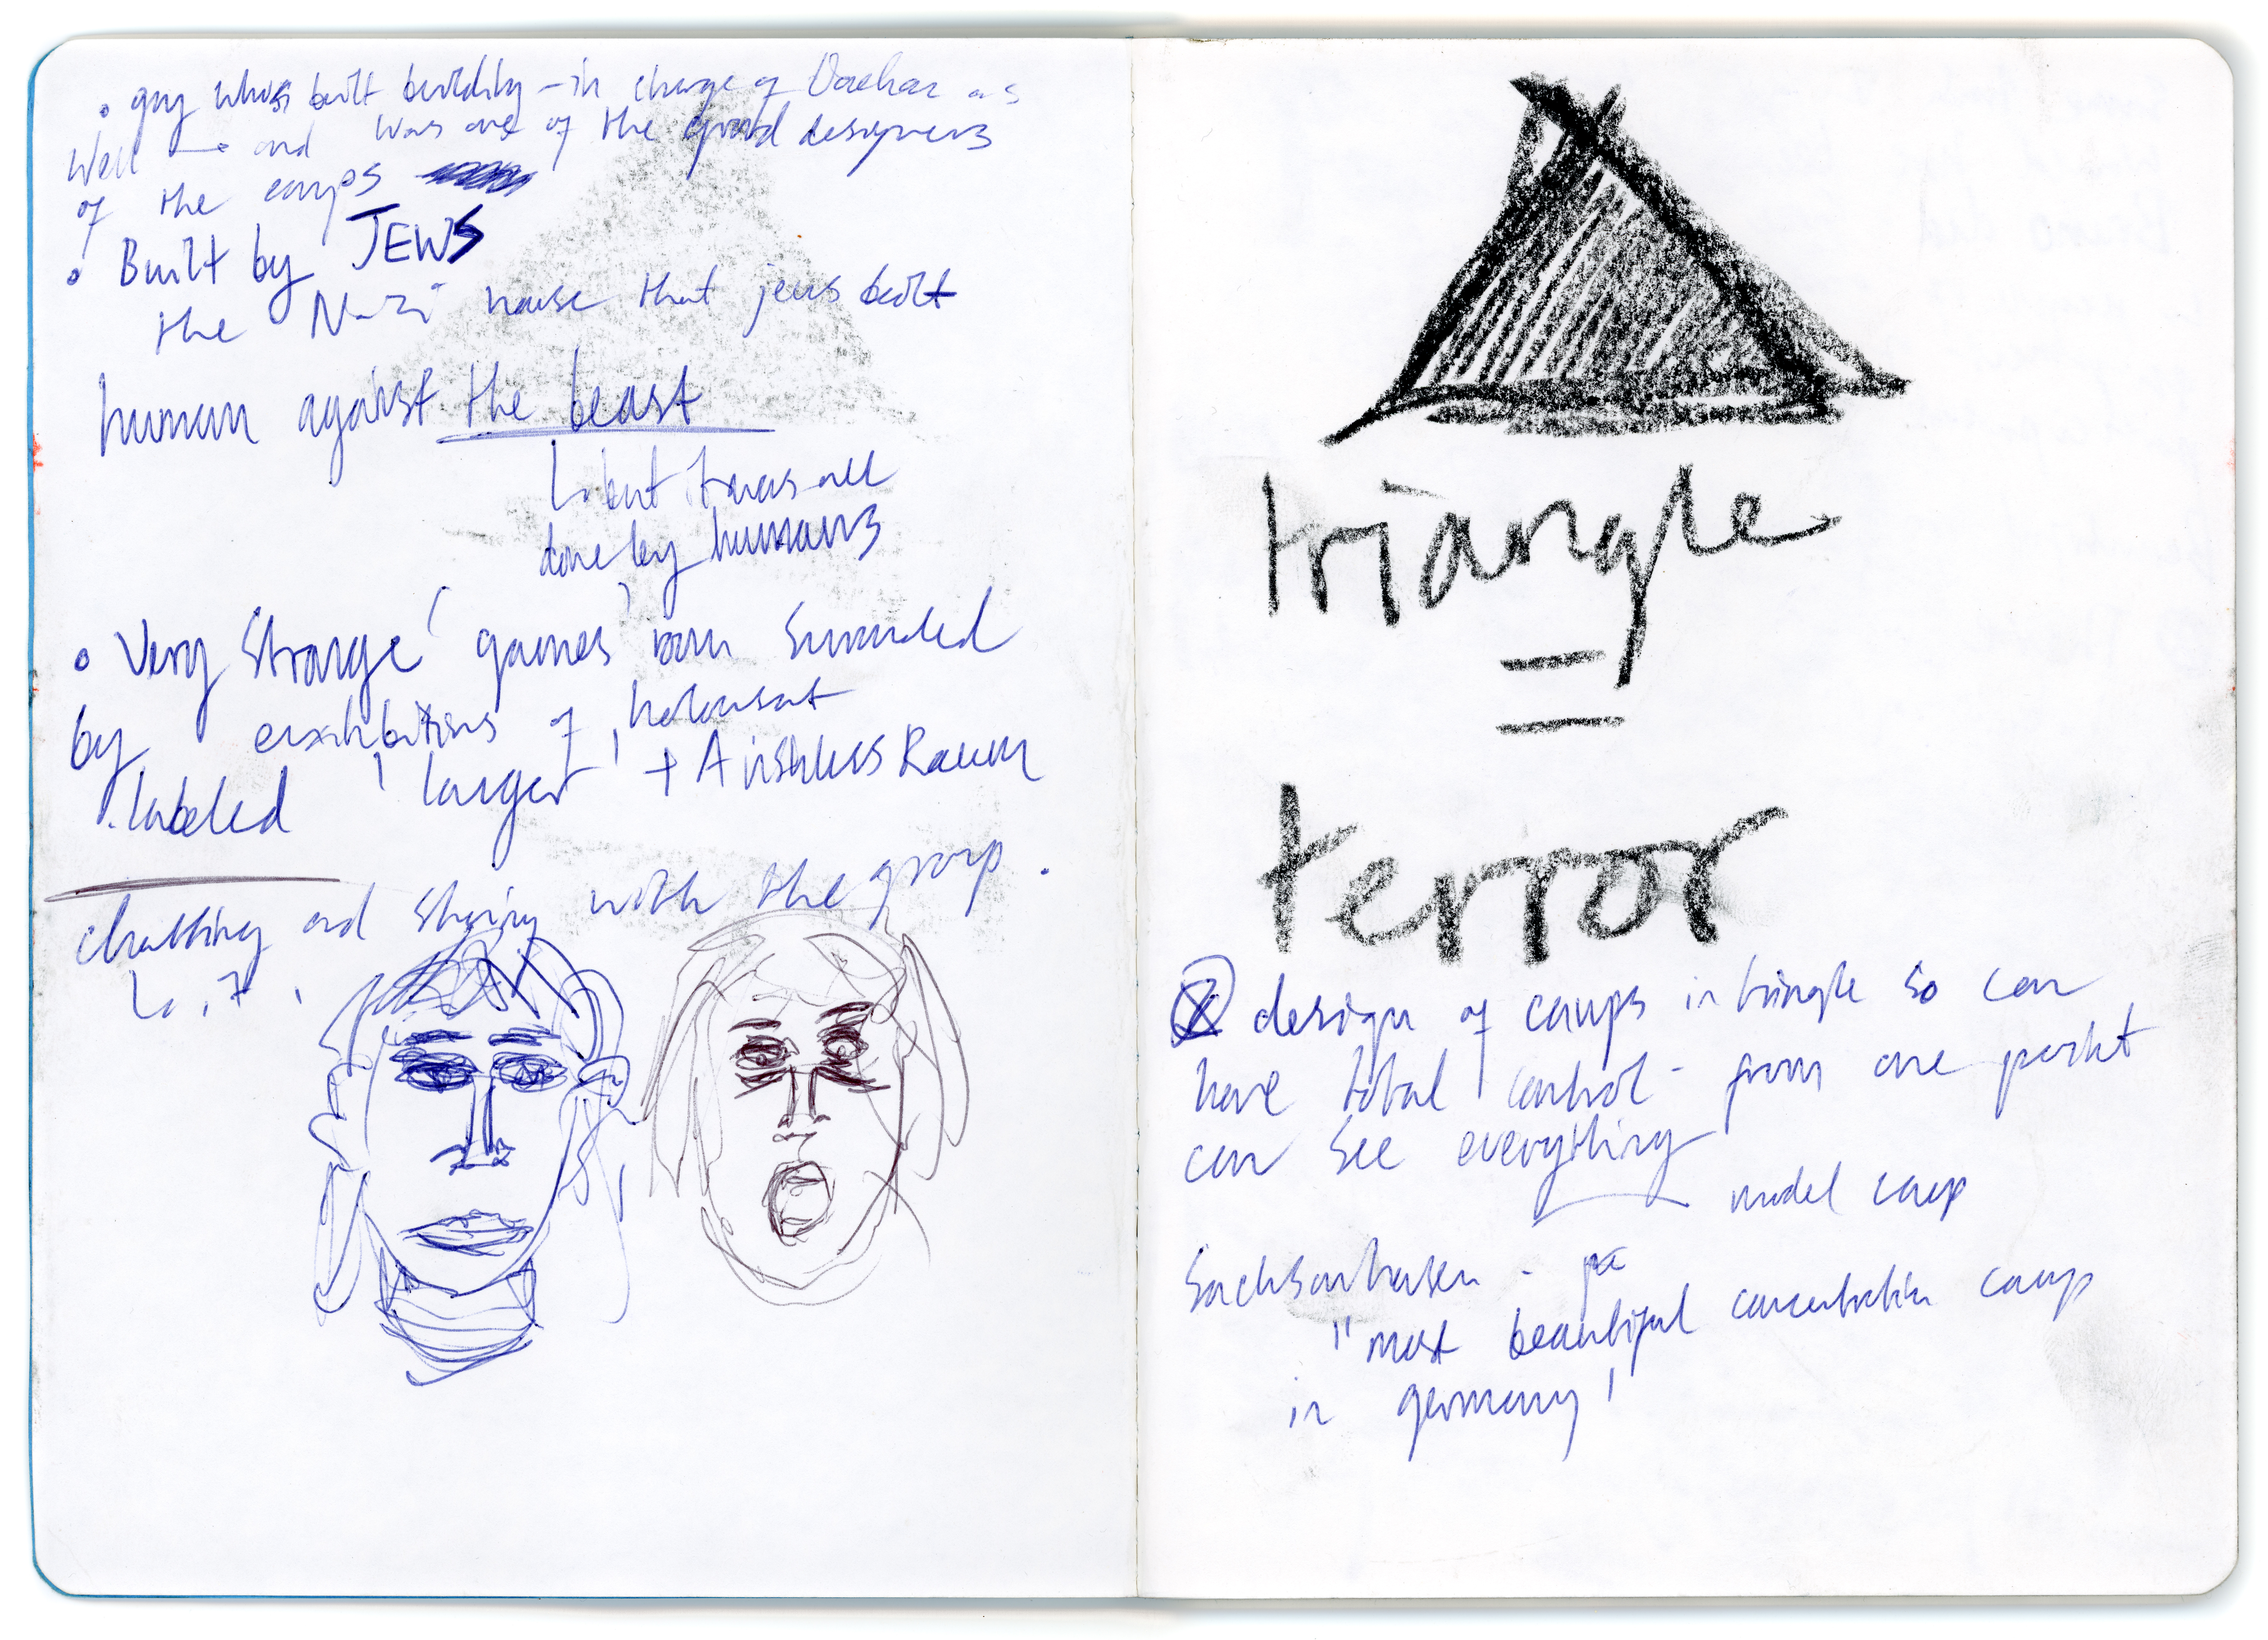 • guy who built building – in charge of Dachau as
well → and was one of the grand designers
of the camps
• Built by JEWS
the Nazi house that jews built
human against the beast
↳ but it was all
done by humans
• Very strange 'games' room surrounded
by exxhibitions of holocaust
labeled 'larger' + Raum
chatting and sharing with the group.
triangle
=
terror
design of camps in triangle so can
have total control – from one point
can see everything
model camp
Sachsenhausen –
"most beautiful concentration camp
in germany'